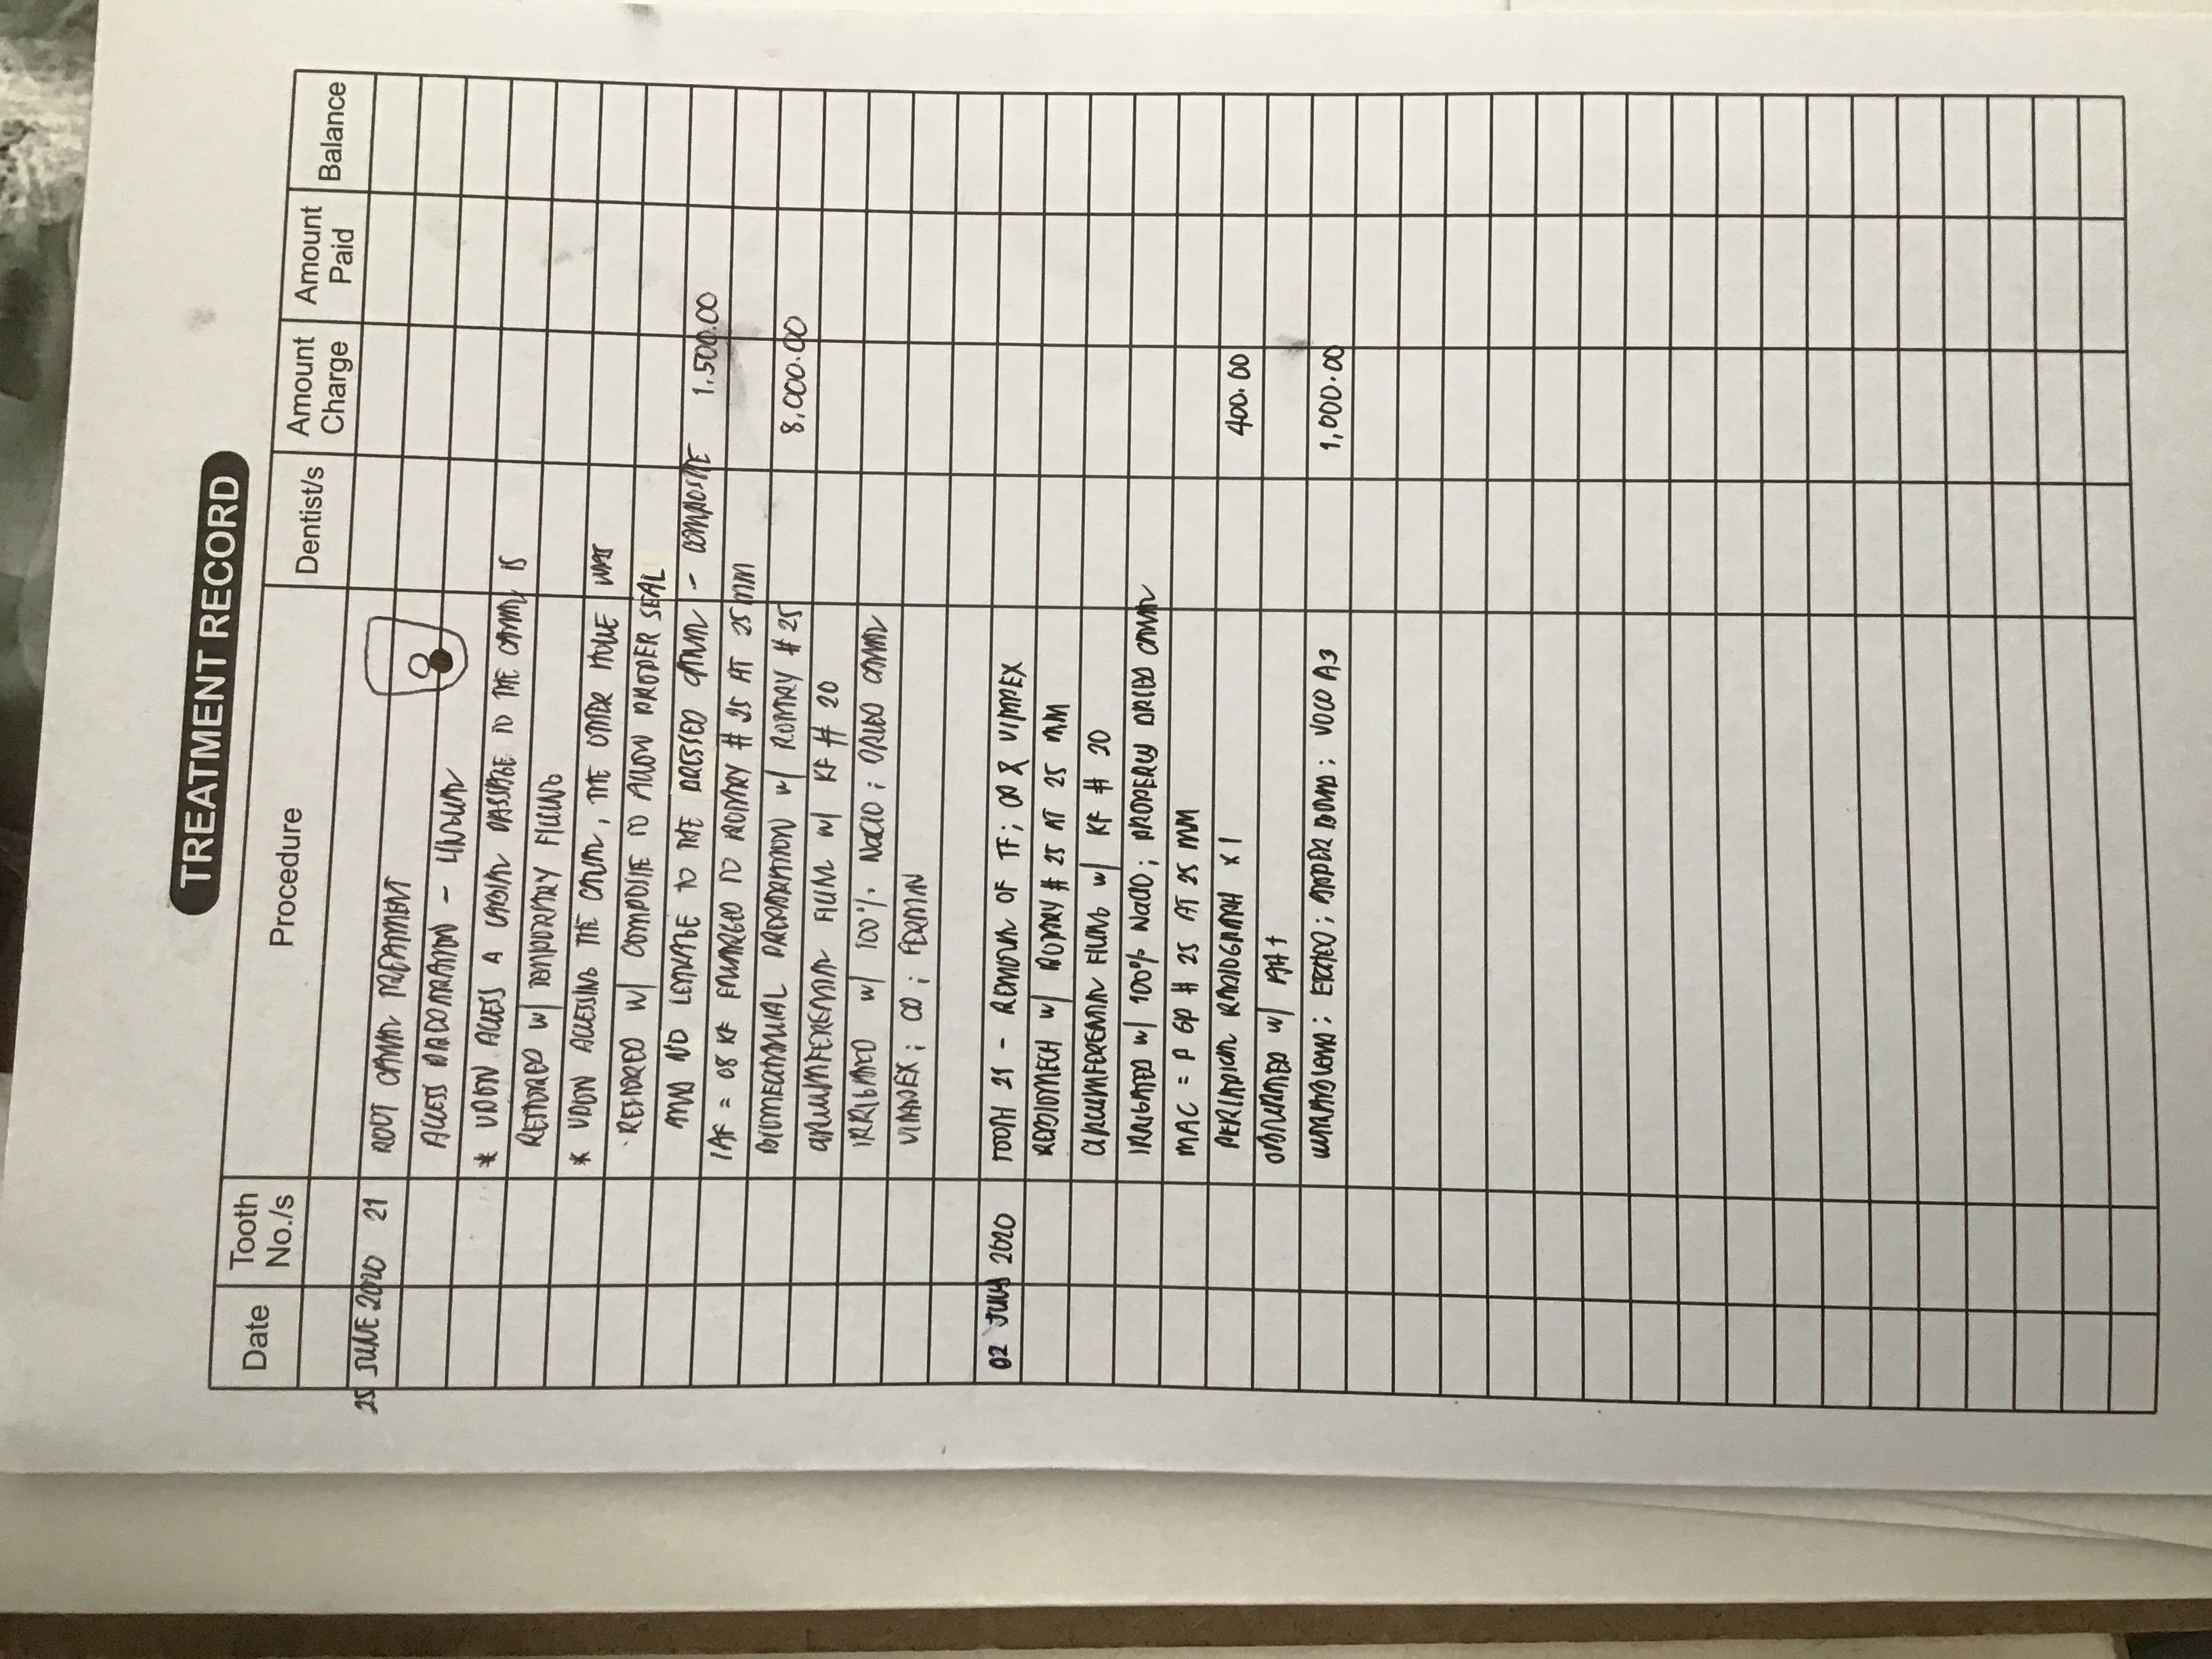 TREATMENT RECORD
Date Tooth No./s Procedure Dentist/s Amount Charge Amount Paid Balance
25 JUNE 2020 21 ROOT CANAL TREATMENT
ACCESS PREPARATION - LINGUAL
* UPON ACCESS A CANAL PASSAGE TO THE CANAL IS
RESTORED W/ TEMPORARY FILLING
* UPON ACCESSING THE CANAL, THE OTHER HOLE WAS
RESTORED W/ COMPOSITE TO ALLOW PROPER SEAL
AND NO LEAKAGE TO THE CANAL - COMPOSITE 1,500.00
IAF = 08 KF ENLARGED TO ROTARY # 25 AT 25 MM
BIOMECHANICAL PREPARATION W/ ROTARY # 25 8,000.00
CIRCUMFERENTIAL FILING W/ KF # 20
IRRIGATED W/ 100% NaClO ; DRIED CANAL
; CO ;
02 JULY 2020 TOOTH 21 - REMOVAL OF TF ; CO & VIMPEX
REBIOMECH W/ ROTARY # 25 AT 25 MM
CIRCUMFERENTIAL FILING W/ KF # 20
IRRIGATED W/ 100% NaClO ; PROPERLY DRIED CANAL
MAC = P GP # 25 AT 25 MM
PERIAPICAL RADIOGRAPH X 1 400.00
OBTURATED W/ AH +
; ETCHED ; BOND ; VOCO A3 1,000.00